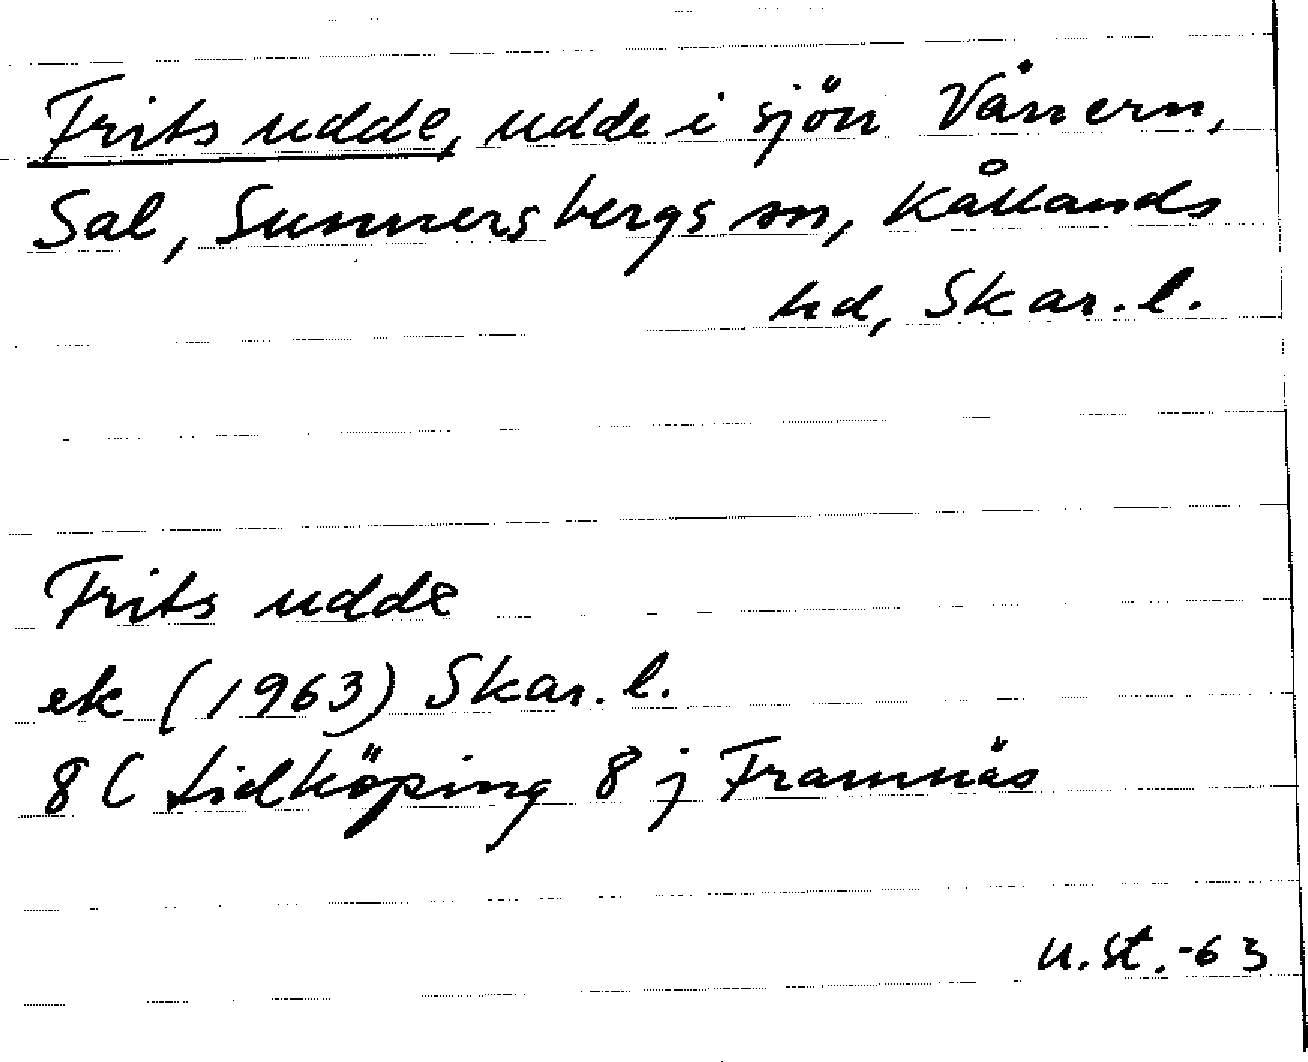 Frits udde, udde i sjön Vänern,
Sal, Sunnersbergs sn, Kållands
hd, Skar. l.
Frits udde
ek (1963) Skar. l.
8 C Lidköping 8 j Framnäs
u. st. -63